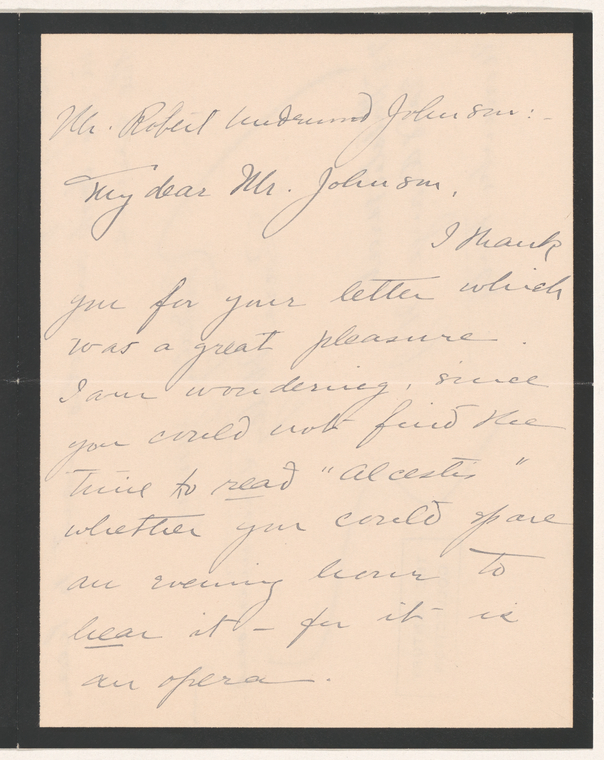 Mr. Robert Underwood Johnson:-
My dear Mr. Johnson,
I thank
you for your letter which
was a great pleasure.
I am wondering, since
you could not find the
time to read "Alcestis"
whether you could spare
an evening hour to
hear it - for it is
an opera.